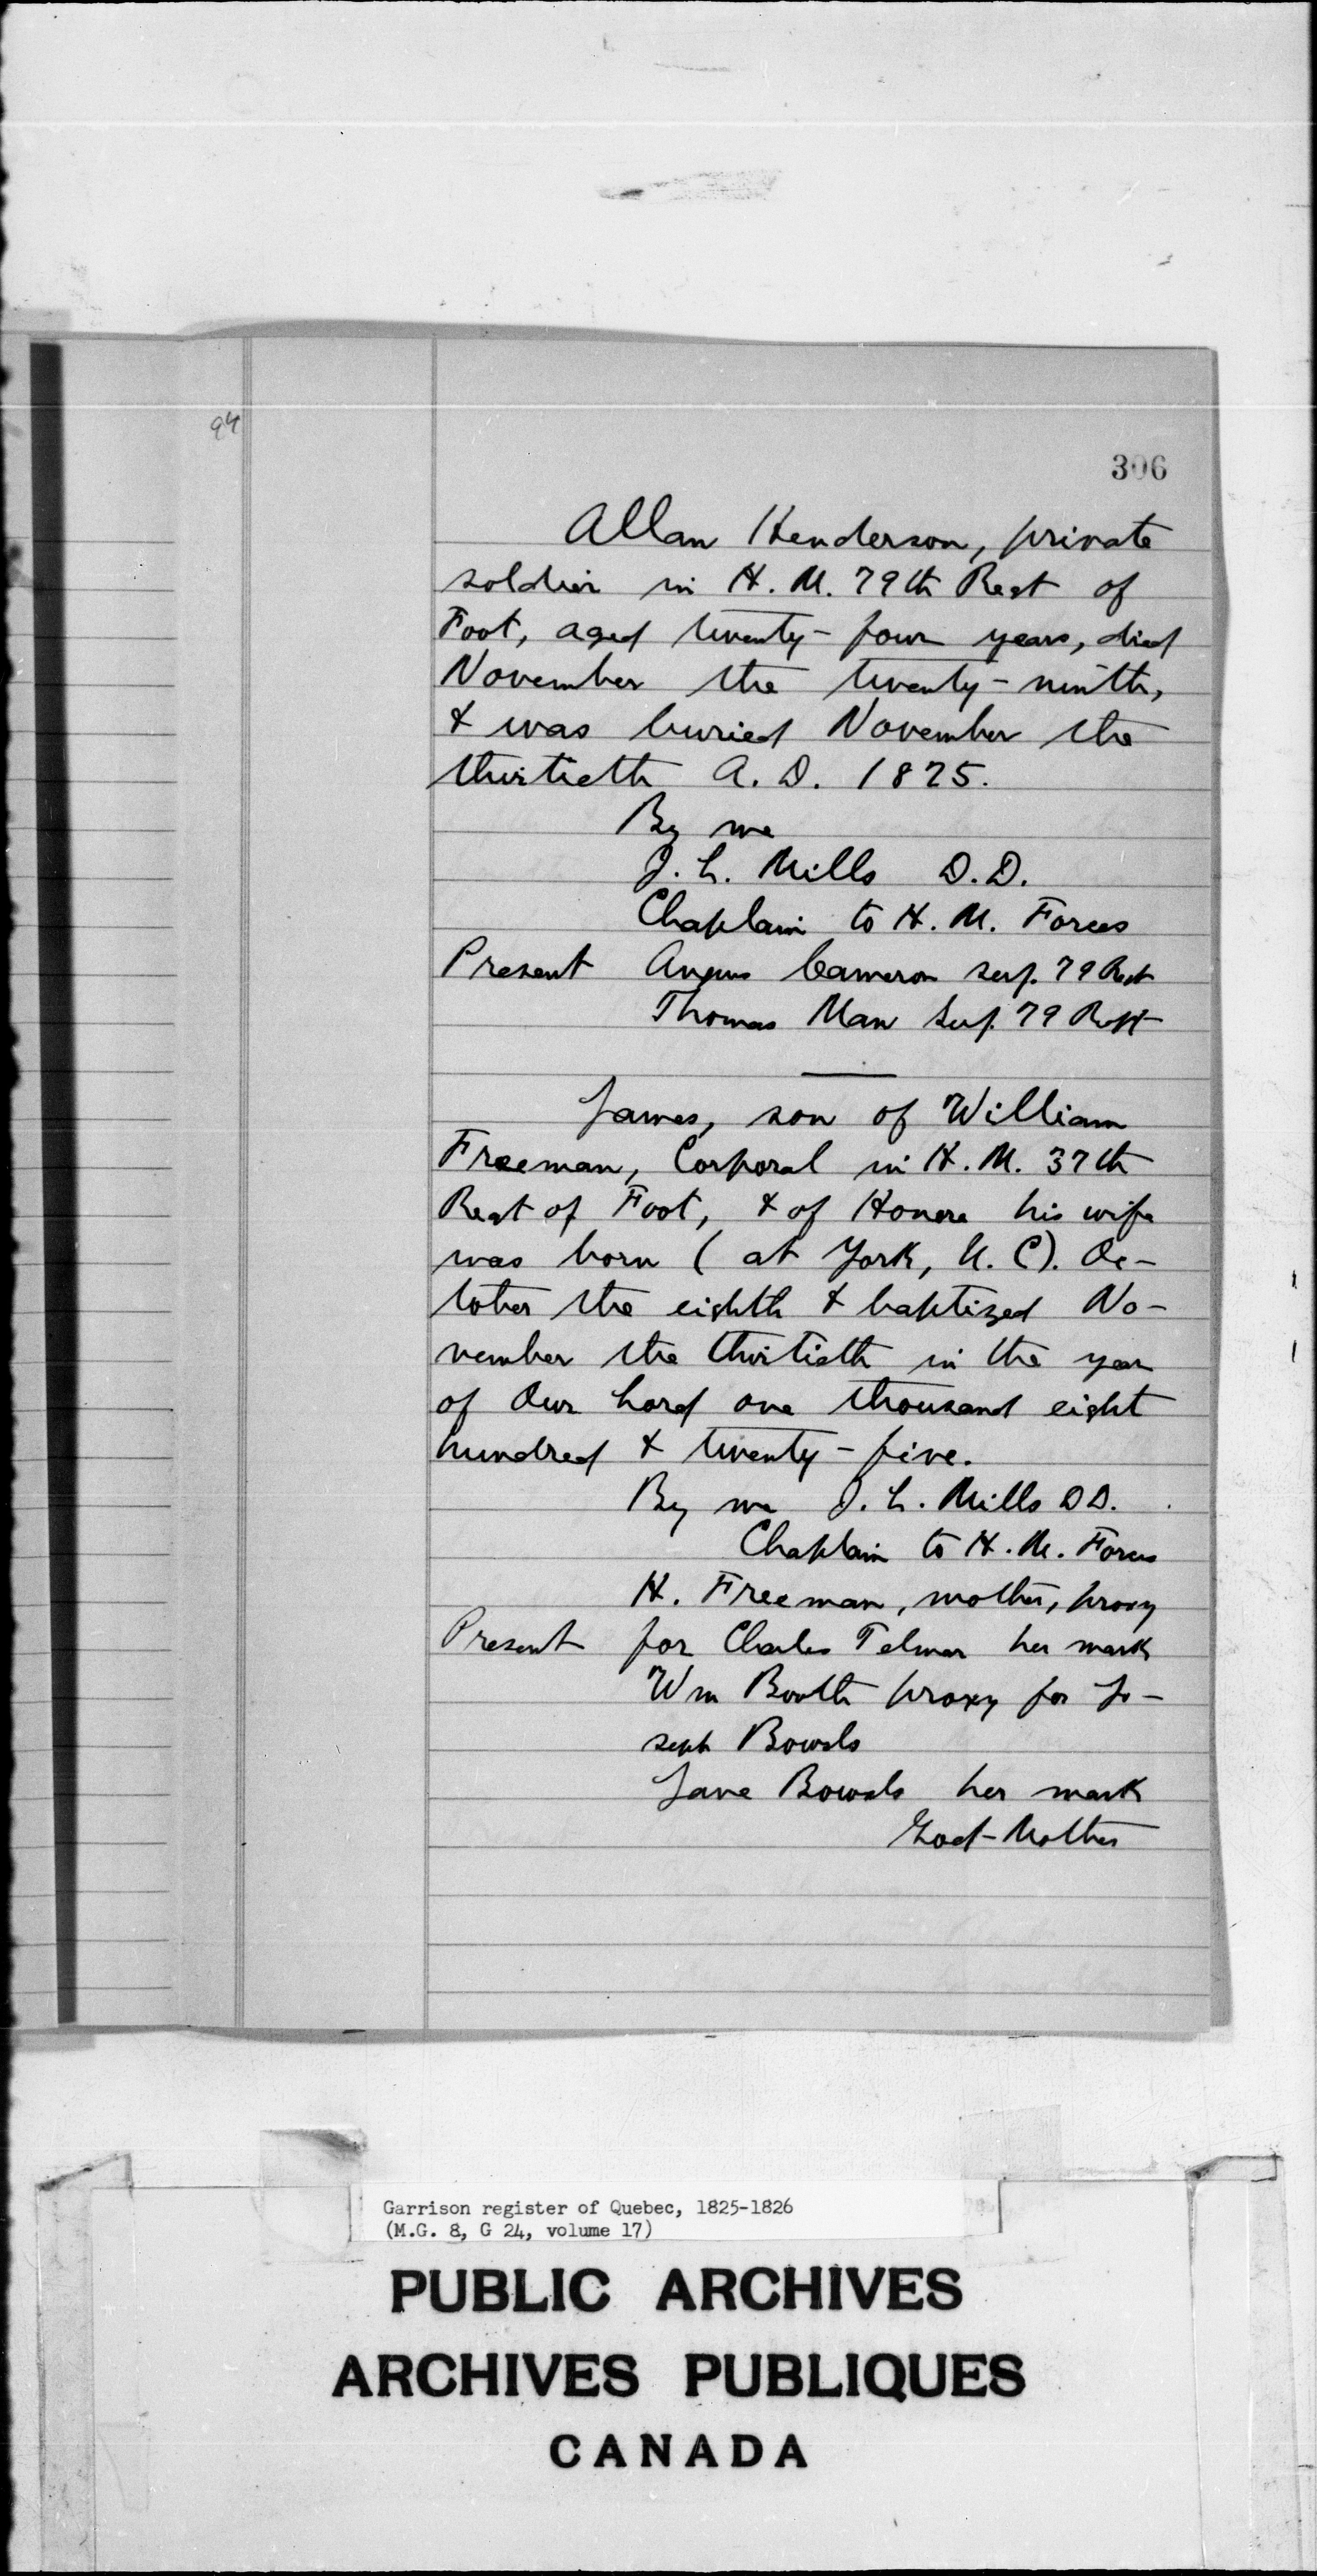 94
306
Allan Henderson, private
soldier in H. M. 79th Regt of
Foot, aged twenty-four years, died
November the twenty-ninth,
& was buried November the
thirtieth A. D. 1825.
By me
J. L. Mills D.D.
Chaplain to H. M. Forces
Present Angus Cameron serj. 79 Regt
Thomas Man Serj. 79 Regt
James, son of William
Freeman, Corporal in H. M. 37th
Regt of Foot, & of Honora his wife
was born (at York, U. C). Oc-
tober the eighth & baptized No-
vember the thirtieth in the year
of Our Lord one thousand eight
hundred & twenty-five.
By me J. L. Mills DD.
Chaplain to H. M. Forces
H. Freeman, mother, proxy
Present for Charles Telmar her mark
Wm Booth proxy for Jo-
seph Bowals
Jane Bowals her mark
God-Mother
Garrison register of Quebec, 1825-1826
(M.G. 8, G 24, volume 17)
PUBLIC ARCHIVES
ARCHIVES PUBLIQUES
CANADA